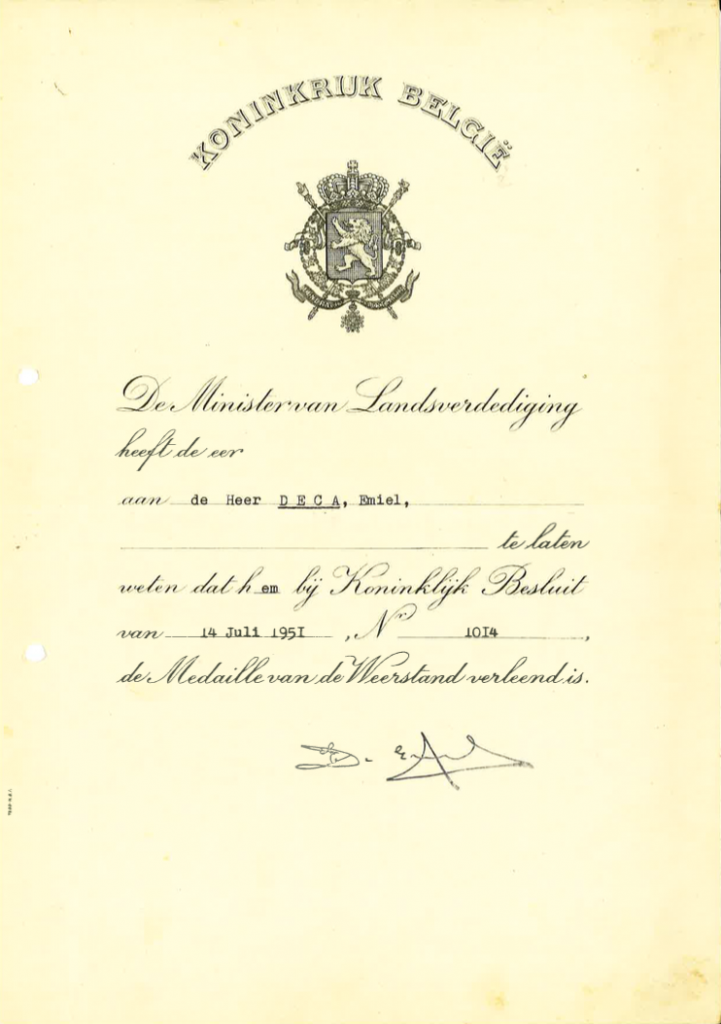 KONINKRIJK BELGIË
De Minister van Landsverdediging
heeft de eer
aan de Heer D E C A, Emiel,
te laten
weten dat hem bij Koninklijk Besluit
van 14 Juli 1951, Nr 1014,
de Medaille van de Weerstand verleend is.